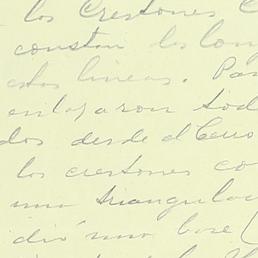 los Crestones C
constan los lon
estas lineas. Par
enlazaron tod
dos desde el Cerro
los crestones co
una triangulac
dió una base (